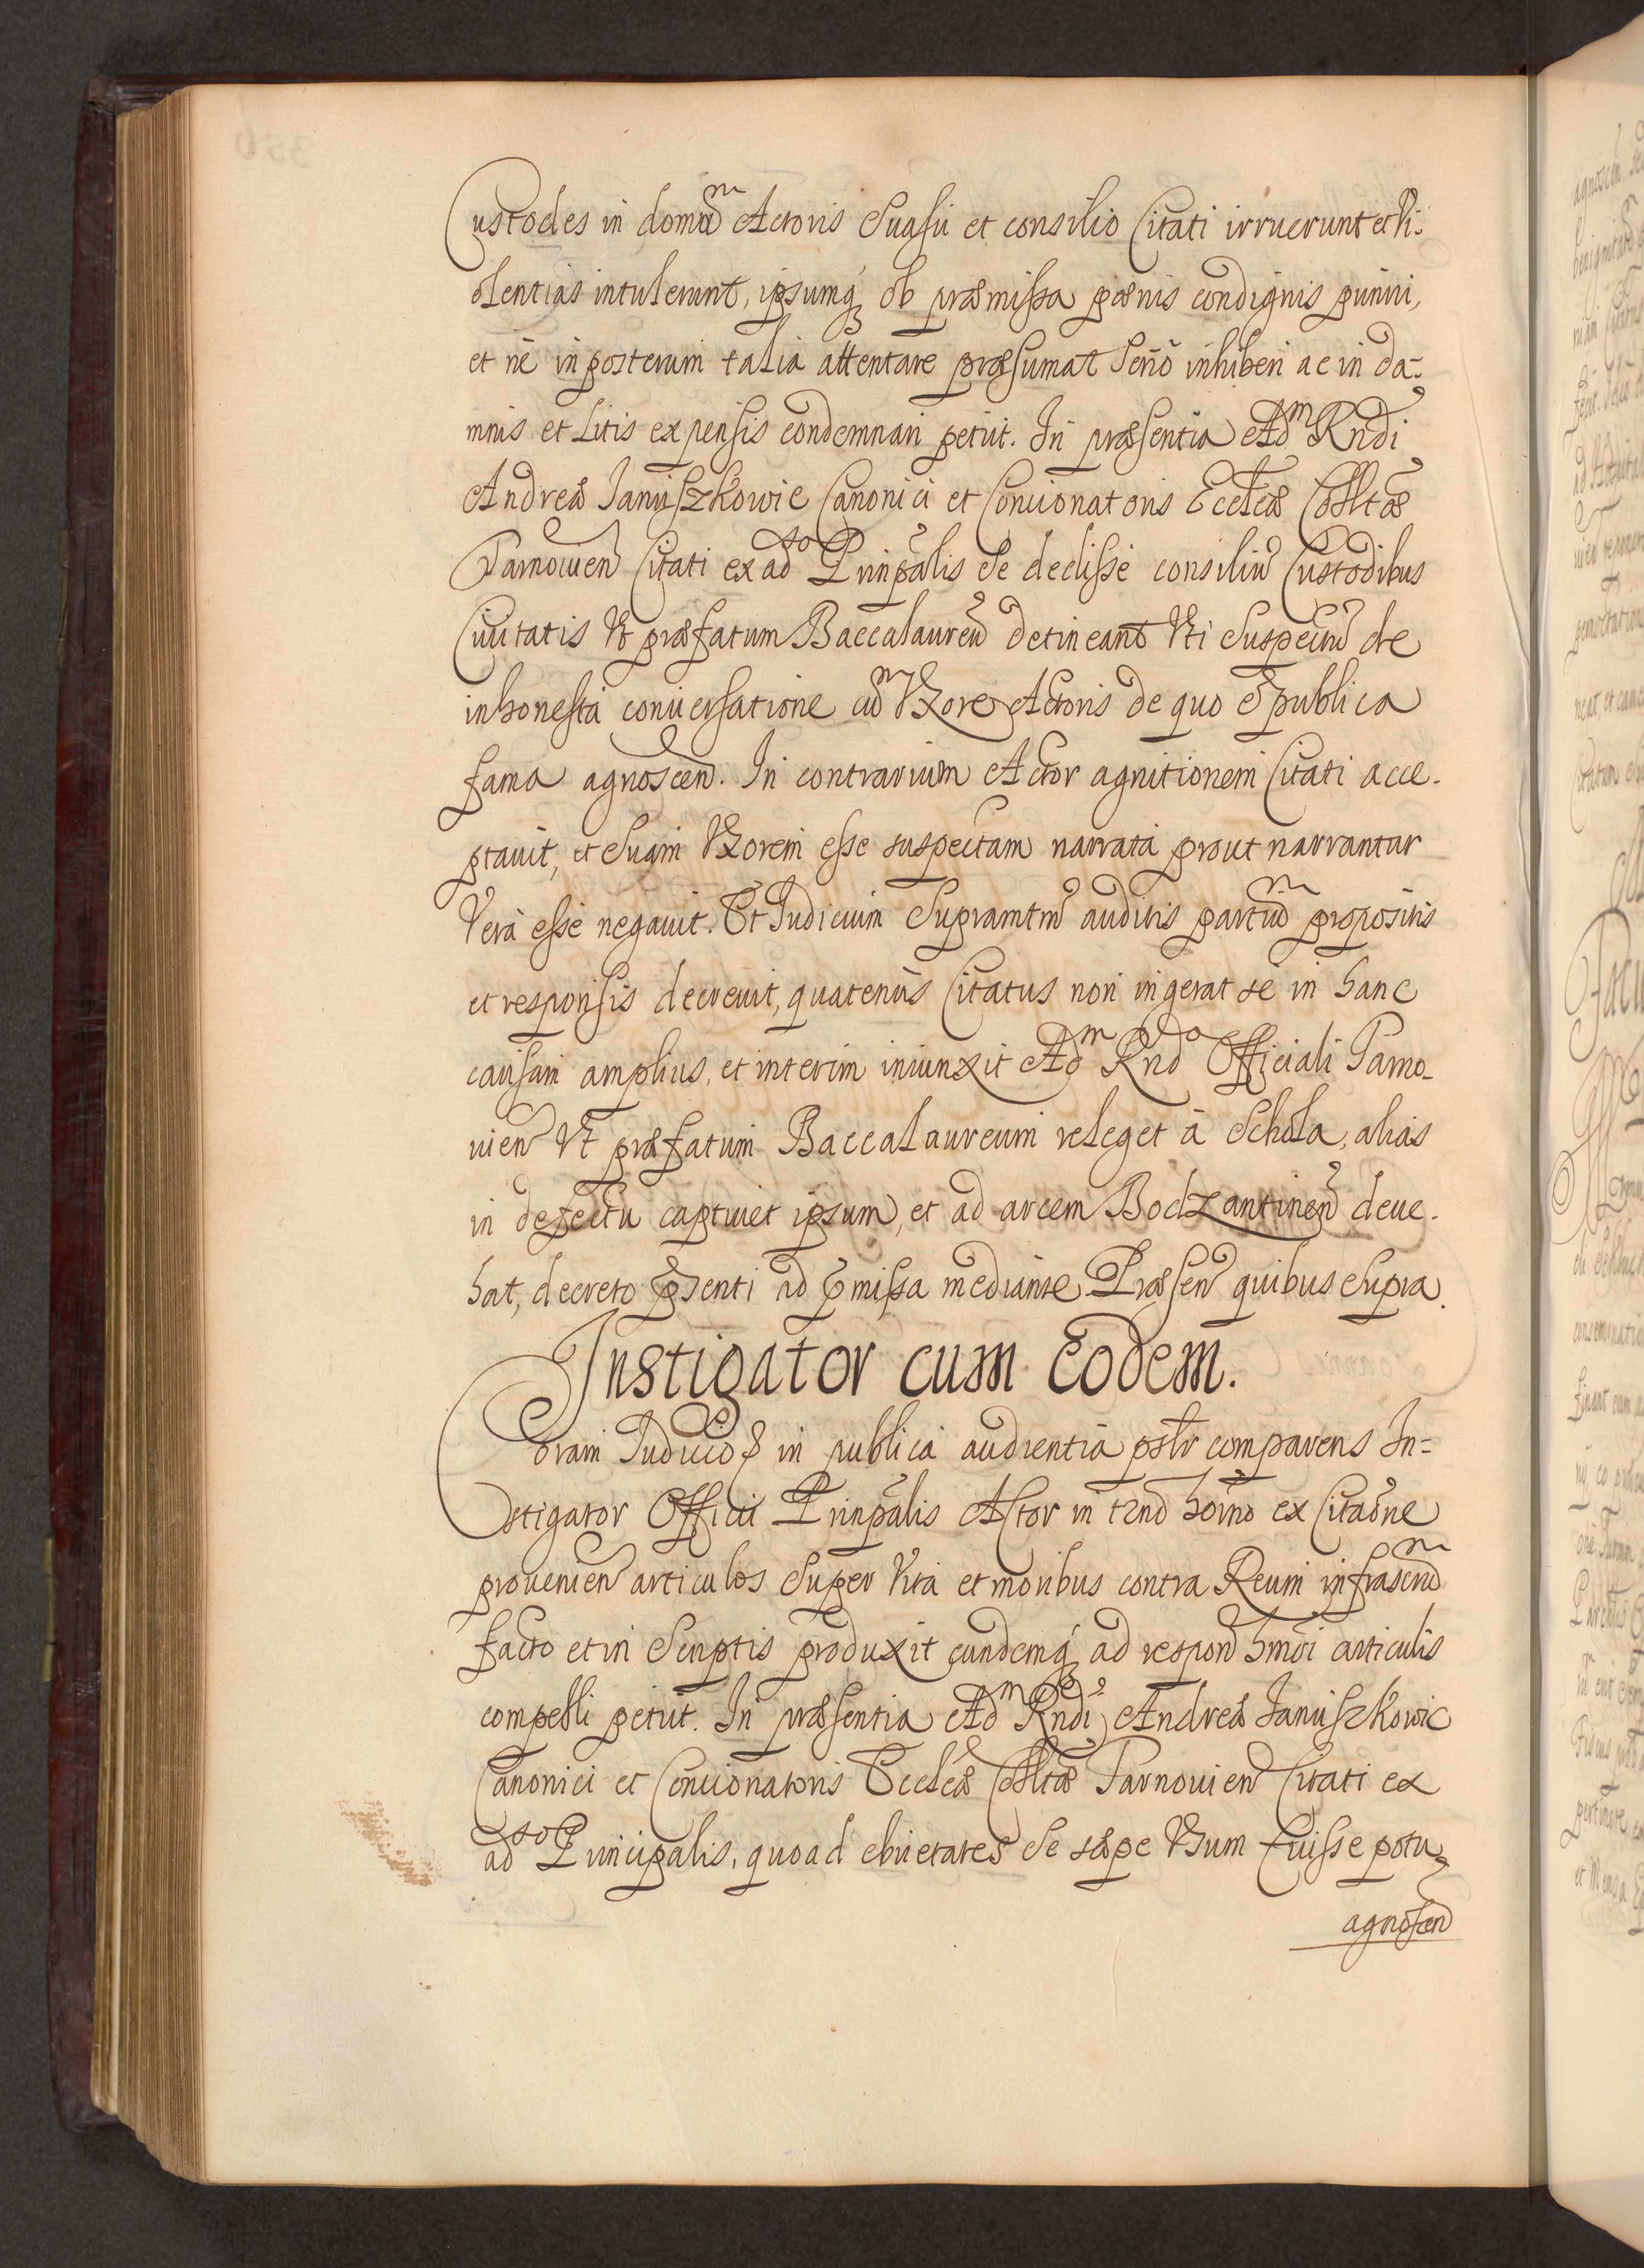 Custodes in domū Actoris Suasu et consilio Citati irruerunt et Vi:
olentias intulerunt, ipsumq́ ob præmissa pœnis condignis puniri,
et ne in posterum talia attentare præsumat Serió inhiberi ac in da:
mnis et Litis expensis condemnari petiit. In præsentia Adm Rndi
Andreæ Januszkowic Canonici et Concionatoris Eccleæ Colltæ
Tarnouien Citati ex adso Prinpalis Se dedisse consiliū Custodibus
Ciuitatis Vt præfatum Baccalaureū detineant Vti Suspectū de
inhonesta conuersatione cū Vxore Actoris de quo e publica
fama agnoscen. In contrarium Actor agnitionem Citati acce-
ptauit, et Suam Vxorem esse suspectam narrata prout narrantur
Vera esse negauit. Et Iudicium Supramtm auditis partiū propositis
et responsis decreuit, quatenus Citatus non ingerat se in hanc
causam amplius, et interim iniunxit Adm Rndo Officiali Tarno-
uien Vt præfatum Baccalaureum releget à Schola, alias
in defectu captiuet ipsum, et ad arcem Bodzantinen deue-
hat, decreto pnsenti ad pmissa mediante. Præsen quibus Supra.
Instigator cum Eodem.
Coram Iudicioq in publica audientia psltr comparens In=
stigator Officii Prinpalis Actor in tnō hoino ex Citaone
prouenien articulos Super Vita et moribus contra Reum infrascrm
facto et in Scriptis produxit eundemq́ ad respon hmoi articulis
compelli petiit. In præsentia Adm Rndi Andreæ Januszkowic
Canonici et Concionatoris Eccleæ Colltæ Tarnouien Citati ex
adso Principalis, quoad ebrietates Se sæpe Vsum fuisse potu
agnoscen